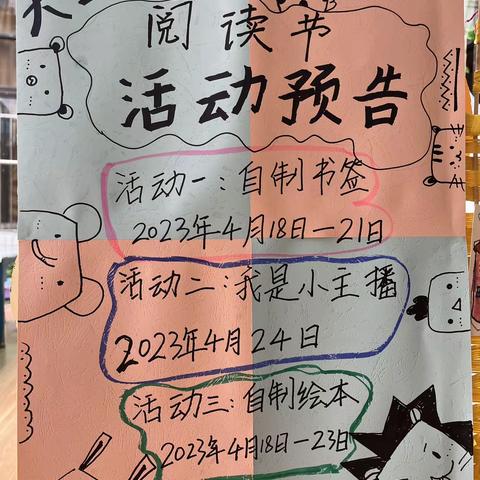 阅读节
活动预告
活动一:自制书签
2023年4月18日—21日
活动二:我是小主播
2023年4月24日
活动三:自制绘本
2023年4月18日—23日